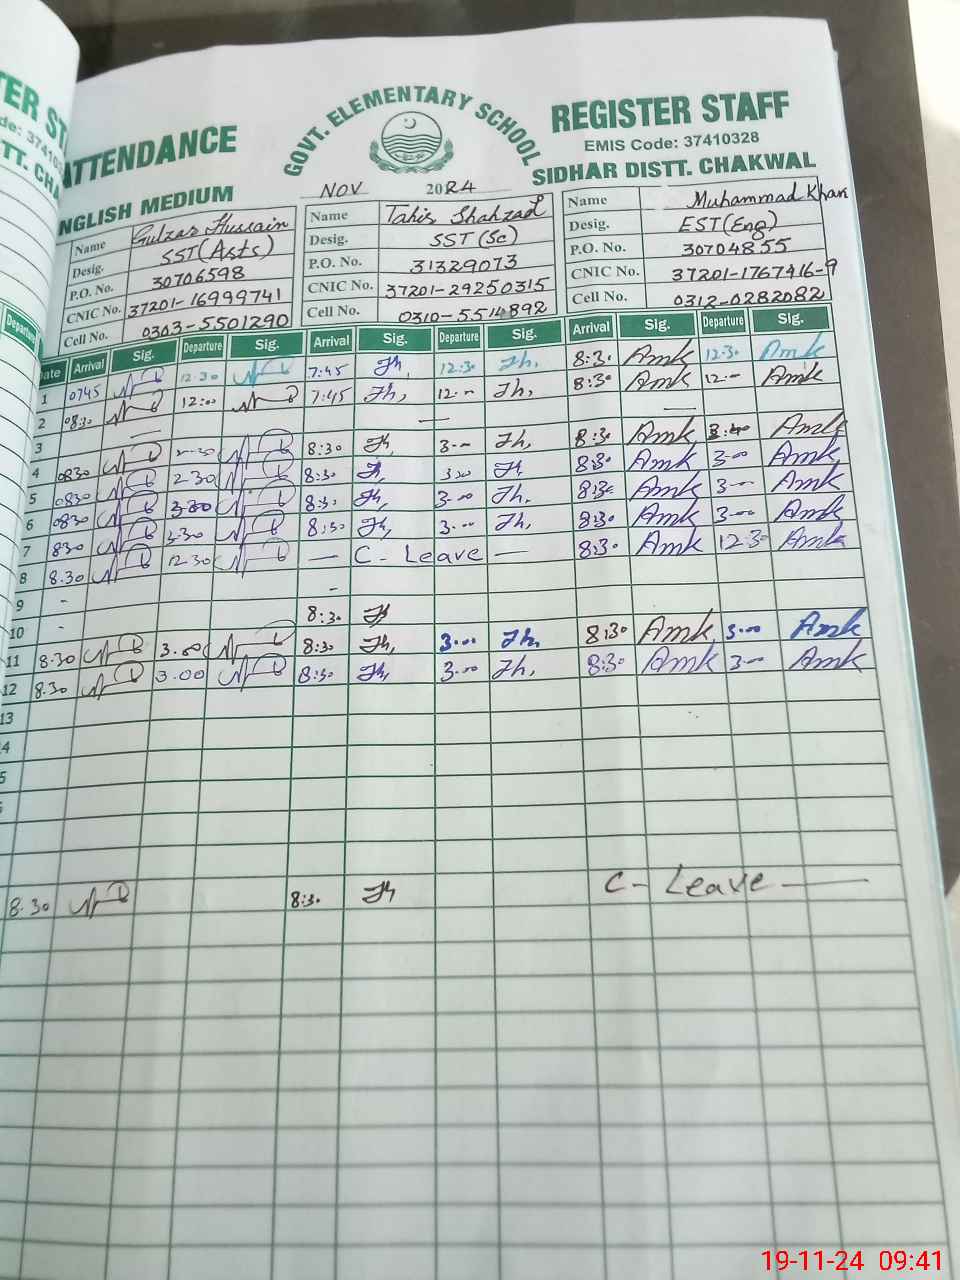 TER ST
de: 3741032
TT. CHA
Departure
ATTENDANCE
GOVT. ELEMENTARY SCHOOL
REGISTER STAFF
EMIS Code: 37410328
SIDHAR DISTT. CHAKWAL
NGLISH MEDIUM
NOV 2024
Name Gulzar Hussain
Desig. SST(Arts)
P.O. No. 30706598
CNIC No. 37201-16999741
Cell No. 0303-5501290
Name Tahir Shahzad
Desig. SST(Sc)
P.O. No. 31329073
CNIC No. 37201-29250315
Cell No. 0310-5514892
Name Muhammad Khan
Desig. EST(Eng)
P.O. No. 30704855
CNIC No. 37201-1767416-9
Cell No. 0312-0282082
ate Arrival Sig. Departure Sig. Arrival Sig. Departure Sig. Arrival Sig. Departure Sig.
1 0745 12:30 7:45 Th, 12:30 Th, 8:30 Amk 12:30 Amk
2 08:30 12:00 7:45 Th, 12:00 Th, 8:30 Amk 12:00 Amk
3
4 0830 8:30 Th, 3:00 Th, 8:30 Amk Amk
5 0830 2:30 8:30 Th, 3:00 Th 8:30 Amk 3:00 Amk
6 0830 3:30 8:30 Th, 3:00 Th, 8:30 Amk 3:00 Amk
7 830 2:30 8:30 Th, 3:00 Th, 8:30 Amk 3:00 Amk
8 8.30 12.30 — C-Leave — 8:30 Amk 12:30 Amk
9
10 8:30 Th
11 8.30 3.00 8:30 Th, 3:00 Th, 8:30 Amk 3:00 Amk
12 8.30 3.00 8:30 Th, 3:00 Th, 8:30 Amk 3:00 Amk
13
4
5
8.30 8:30 Th C-Leave —
19-11-24 09:41